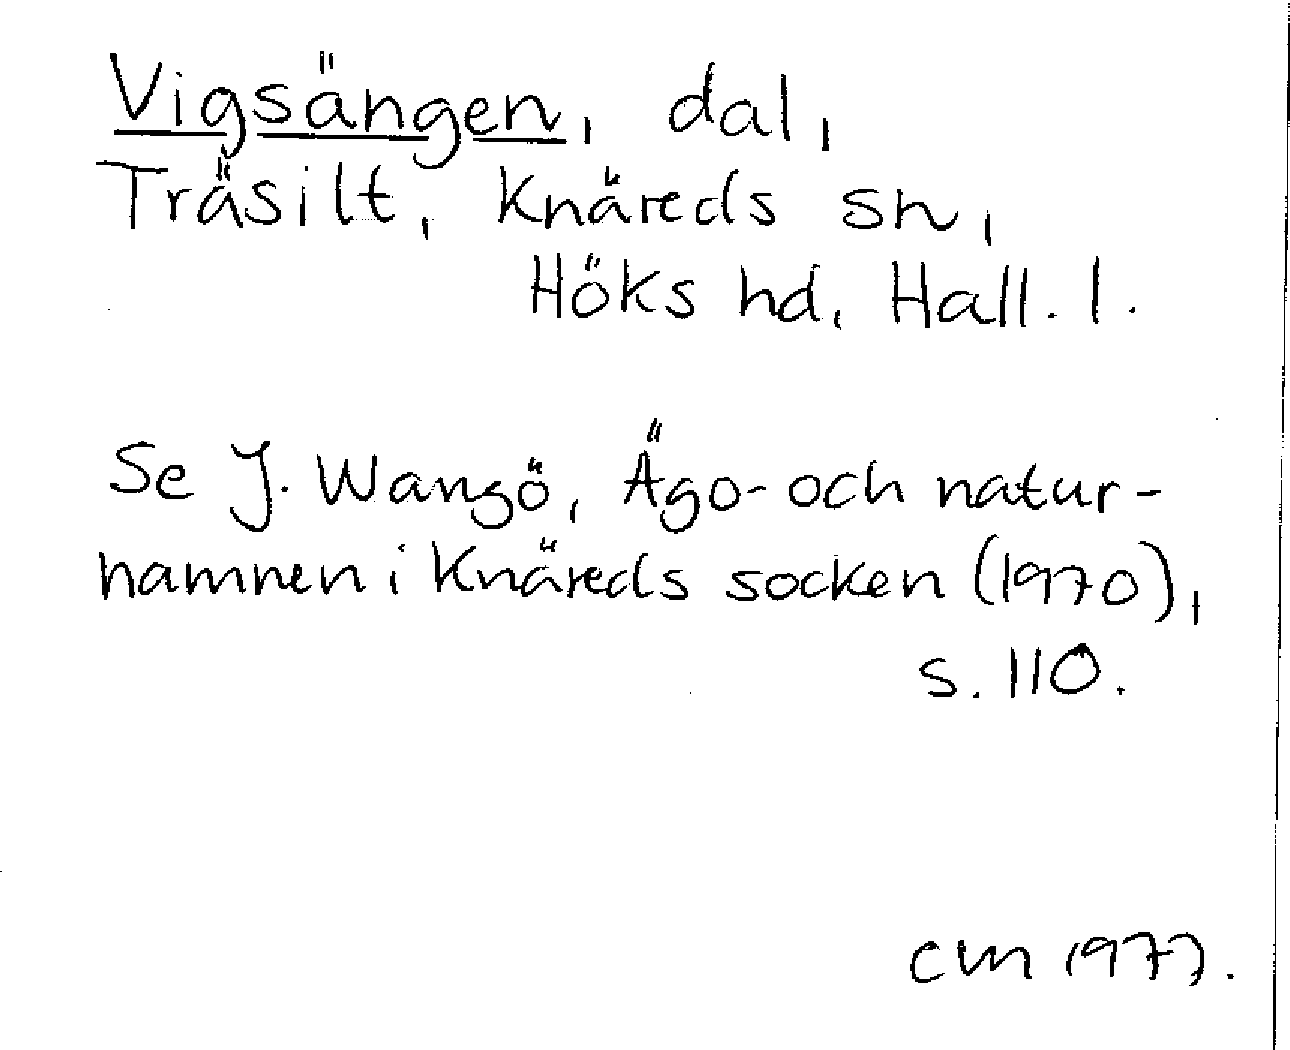 Vigsängen, dal,
Träsilt, Knäreds sn,
Höks hd, Hall. l.
Se J. Wangö, Ägo- och natur-
namnen i Knäreds socken (1970),
s. 110.
CM 1977.